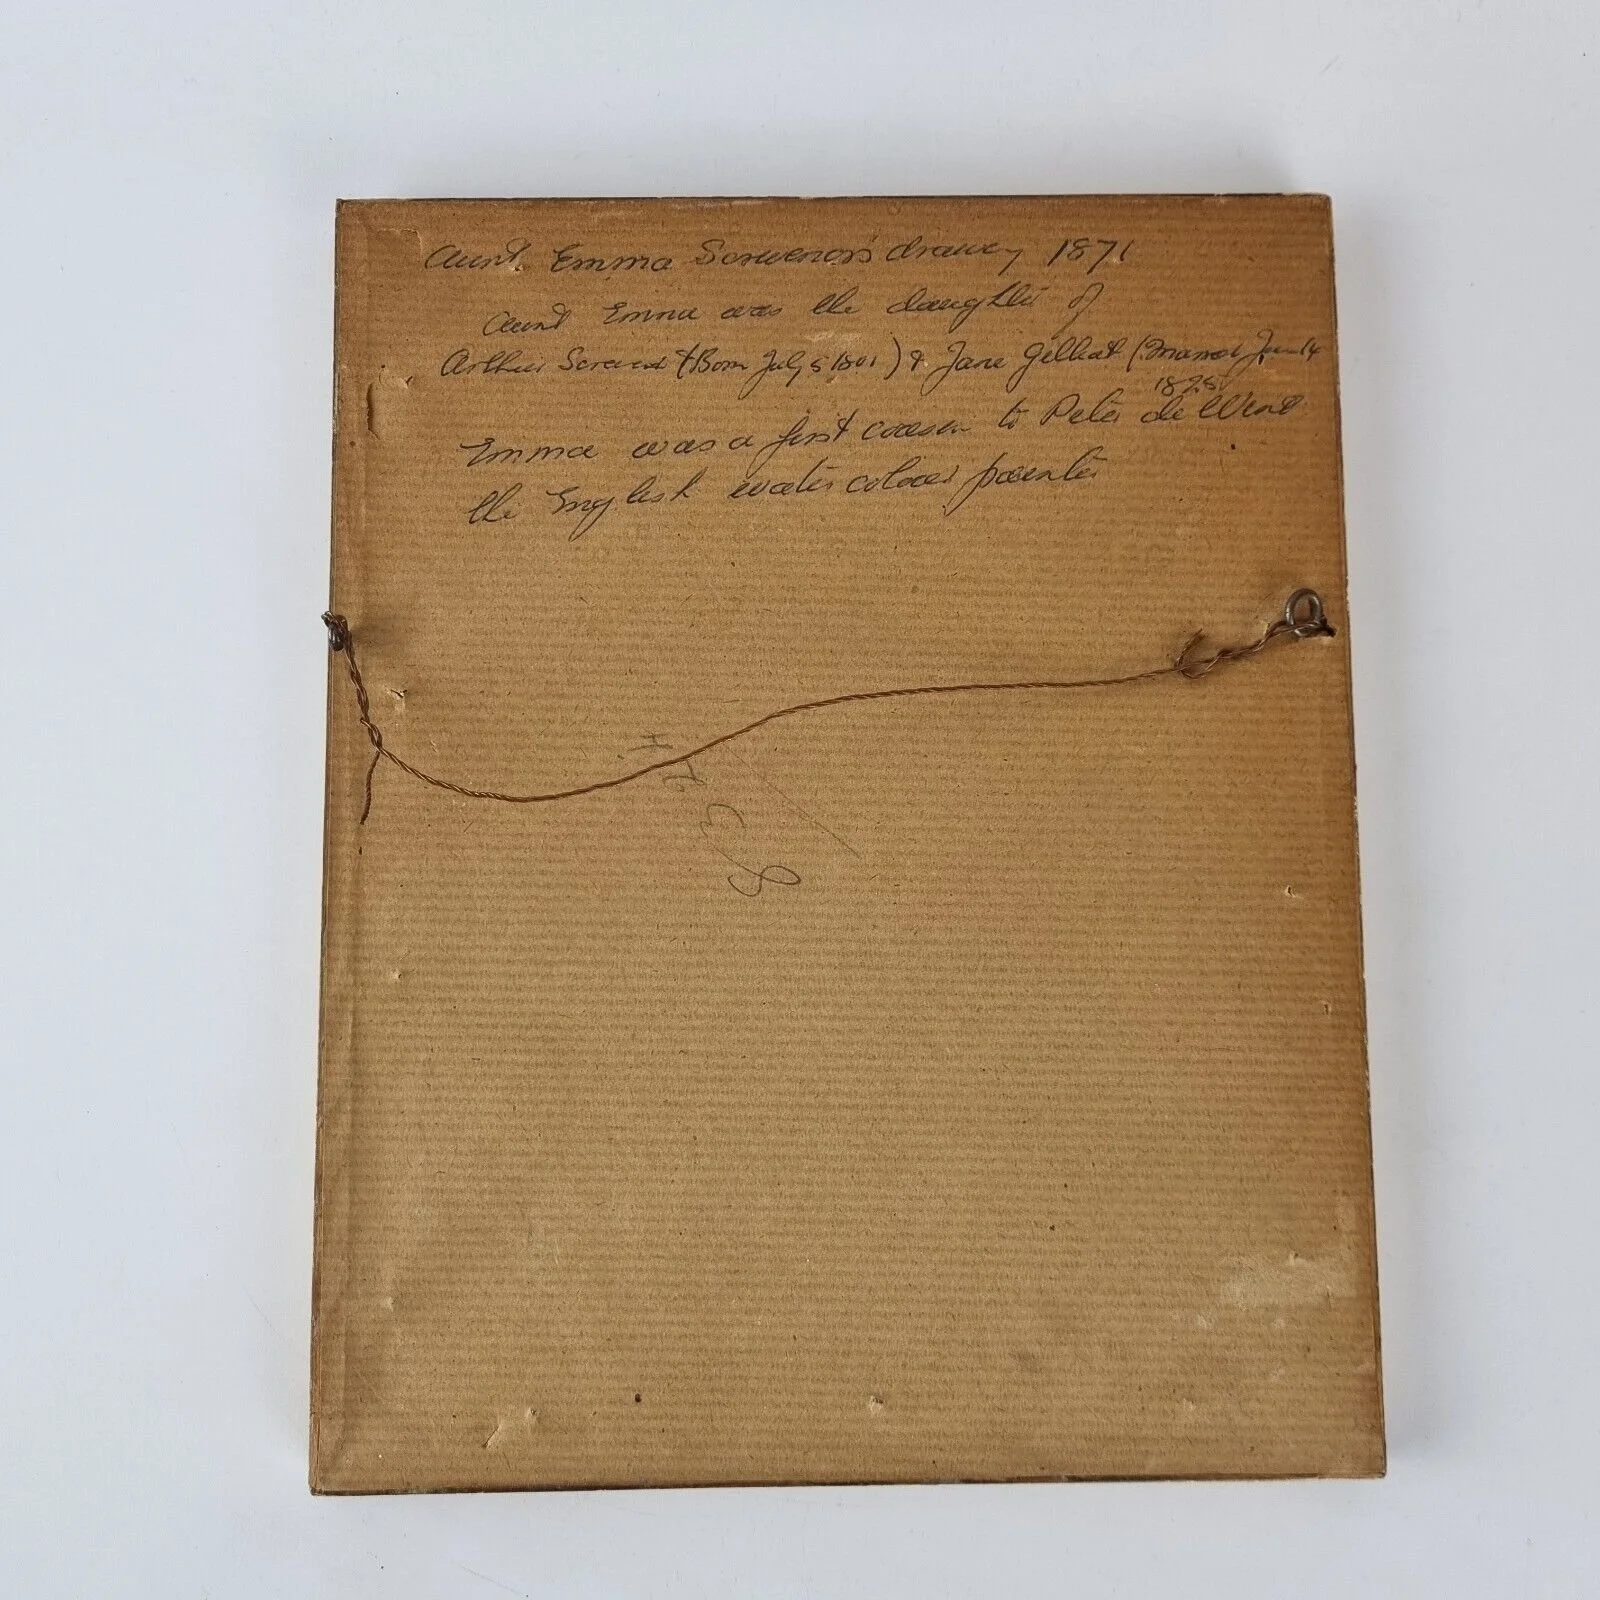 Aunt Emma Scrivenor's drawing 1871
Aunt Emma was the daughter of
Arthur (Born July 5 1801) & Jane Gilliat (Married June 14
1828
Emma was a first cousin to Peter de Wint
the English water colour painter